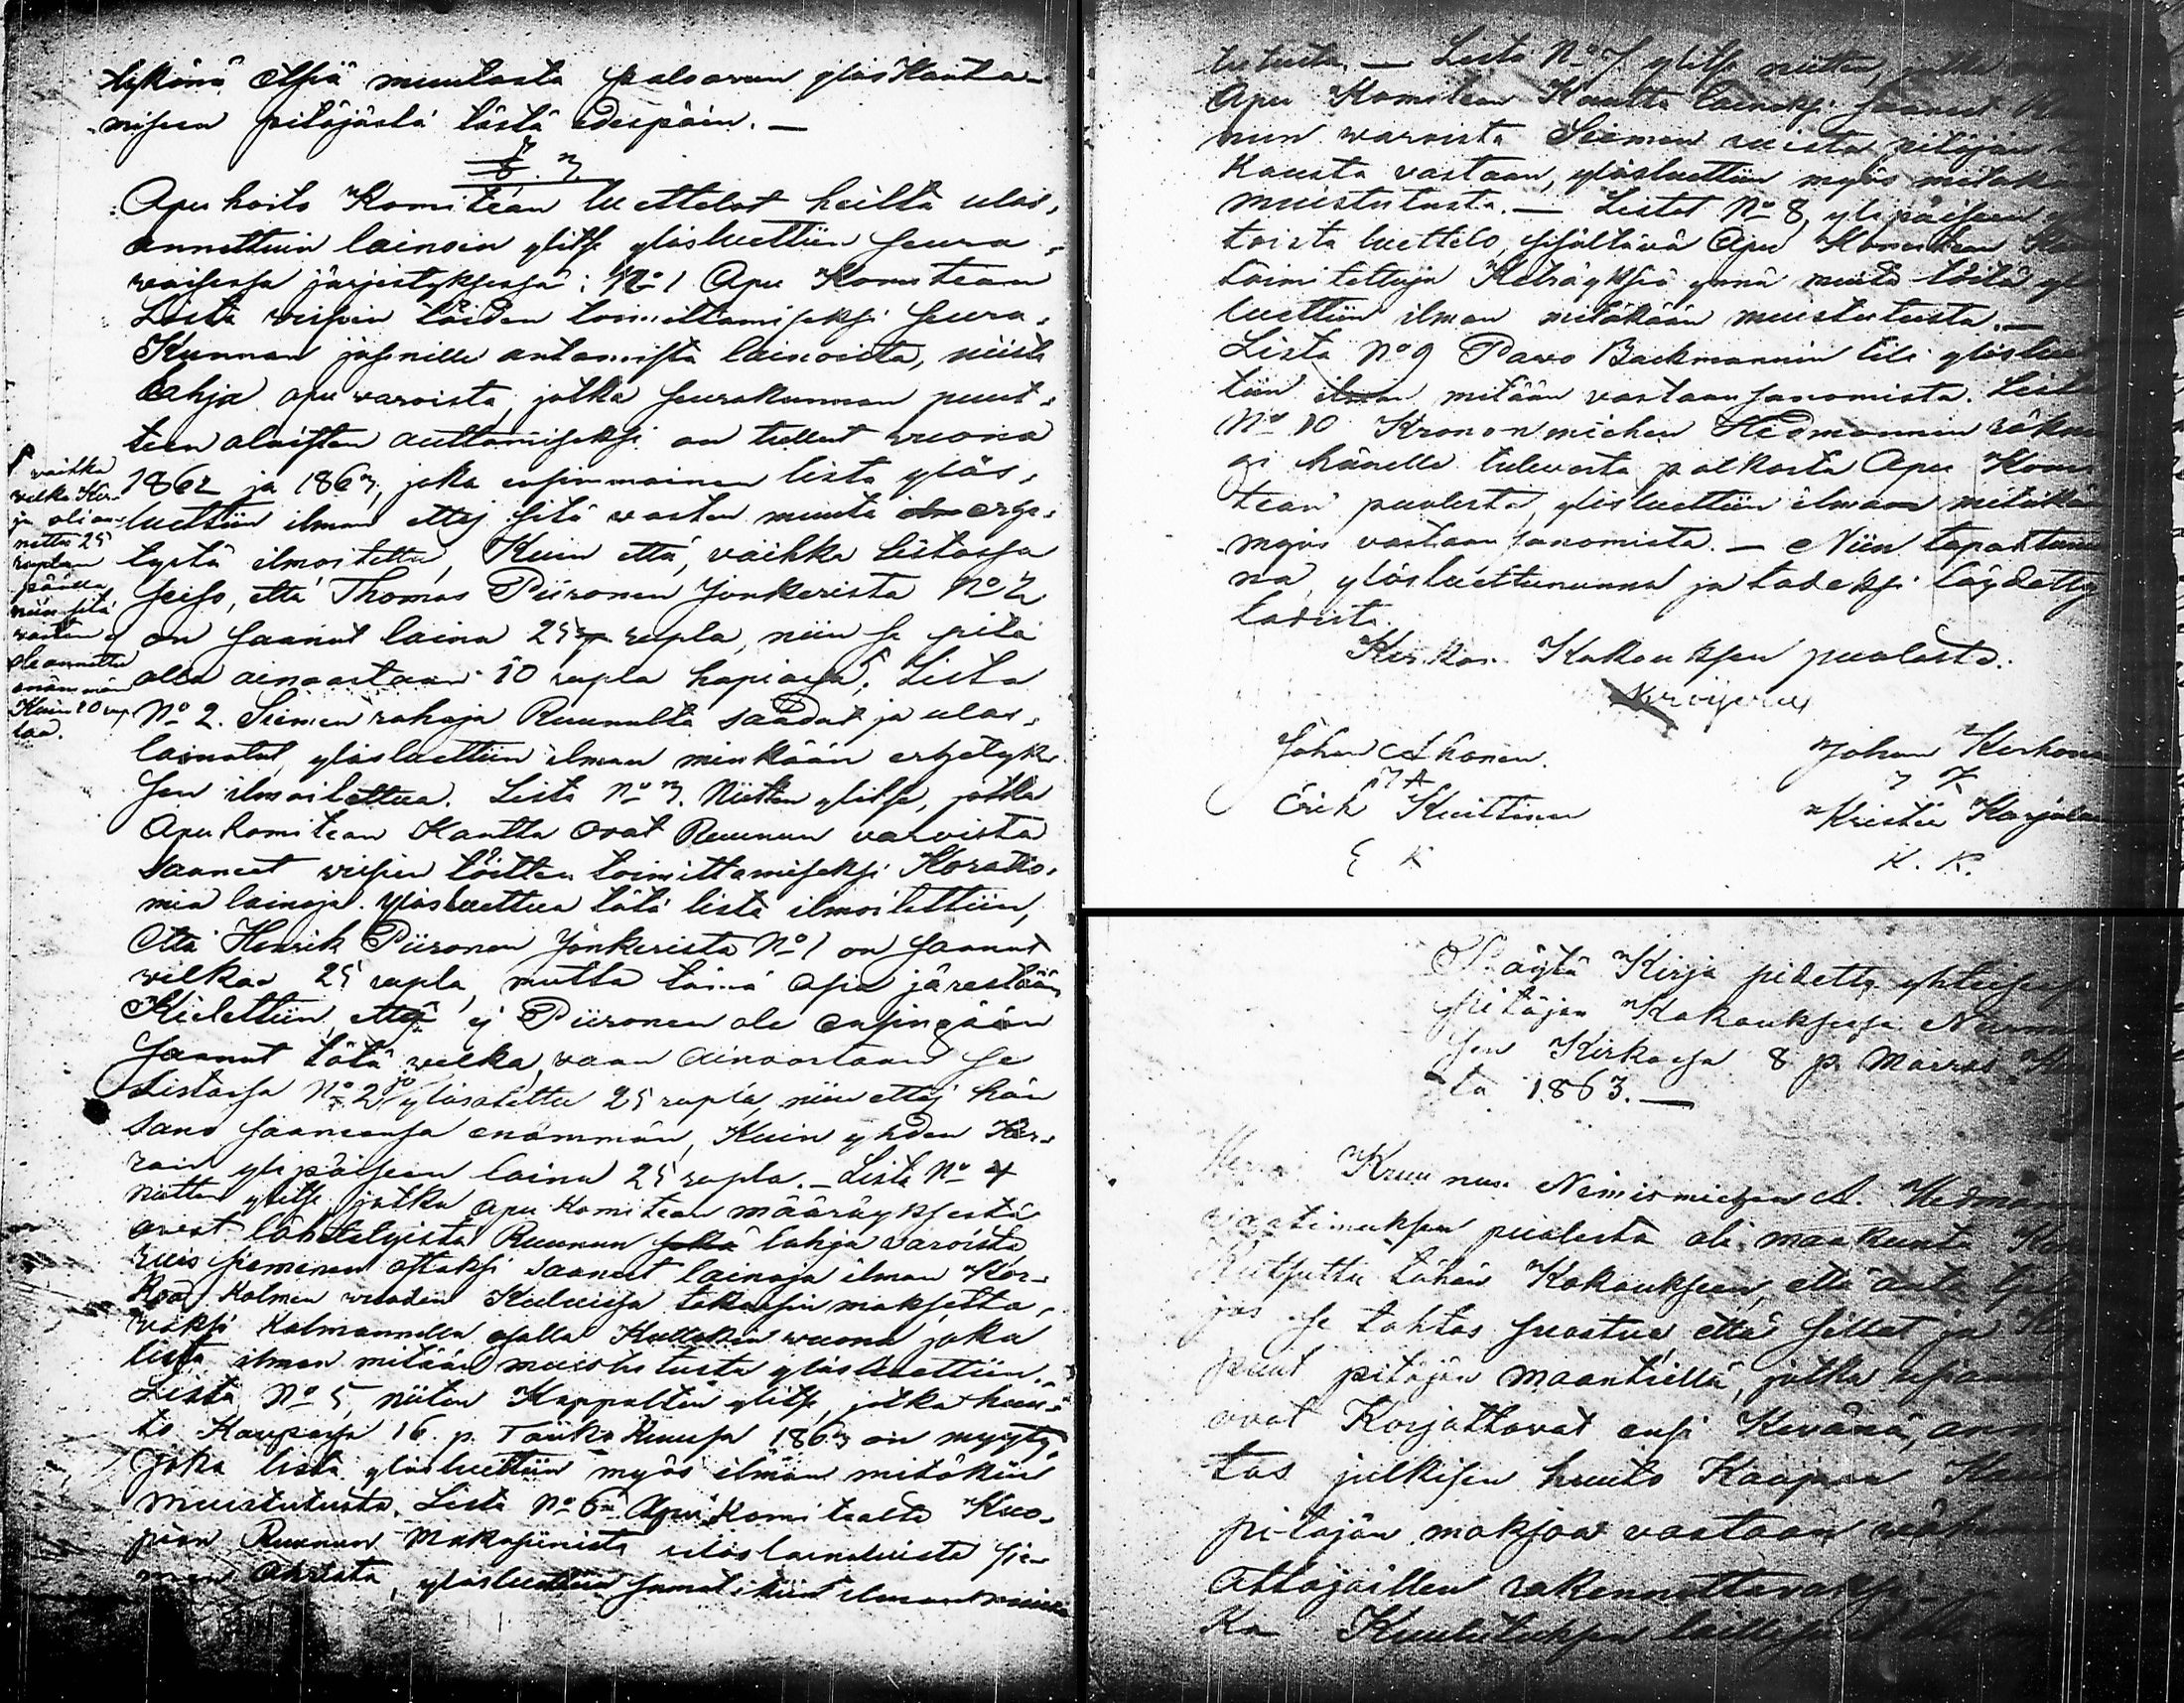 tykönä etsiä muutosta paloavun ylöskanta-
miseen pitäjästä tästä edespäin. —
§ 3.
Apu hoito Komitean luettelot heiltä ulos,
annettuin lainoin ylitse ylösluettiin seura,
waisessa järjestyksessä: No 1 Apu Komitean
Lista töiden toimittamiseksi seura,
Kunnan jäsenille antamista lainoista, niistä
lahja apu waroista, jotka seurakunnan puut,
teen alaisten auttamiseksi on tullut wuona
1862 ja 1863, joka ensimmäinen lista ylös,
luettiin ilman ettej sitä wasten muuta erhe,
tystä ilmoitettu, Kuin että, vaikka listassa
seiso, että Thomas Piironen Jonkerista No 2
on saanut laina 25 rupla, niin se pitä
olla ainoastaan 10 rupla hopiassa. Lista
No 2. Siemen rahoja Ruunulta saadut ja ulos,
lainatut, ylösluettiin ilman minkään erhetyk-
sen ilmoitettua. Lista No 3. Niitten ylitse, jotka
Apukomitean Kautta ovat Ruunun varoista
saaneet töitten toimittamiseksi Korotto,
mia lainoja. Ylösluettua tätä lista ilmoitettiin,
Että Henrik Piironen Jonkerista No 1 on saanut
welkaa 25 rupla, mutta tämä asia järestään
Kiellettiin, ej Piironen ole ensingään
saanut tätä welka, vaan ainoastaan se
Listassa No 2 jo ylösotettu 25 rupla, niin ettej hän
sano saaneensa enämmän, Kuin yhden Ker-
ran ylipäiseen laina 25 rupla. — Lista No 4
niitten ylitse jotka apu Komitean määräyksestä
ovat lähetetyistä Ruunun lahja varoista
ruis siemenen ostoksi saaneet lainoja ilman Kor-
Koa Kolmen vuoden Kuluessa takasin maksetta,
waksi Kolmannella osalla Kullakin wuona joka
lista ilman mitään muistutusta ylösluettiin. —
Lista No 5 niiten Kappalten ylitse, jotka huu-
to Kaupassa 16. p. Touko Kuussa 1863 on myyty,
Joka lista ylösluettiin myös ilman mitäkän
muistutusta. Lista No 6 Apu Komitealta Kuo-
pion Ruunun Makasiinista uloslainatuista sie-
men Ohrista, ylösluettiin samati kuin ilman muis-
vaikka
welka Kir-
ja oli an-
nettu 25
ruplan
päälle
niin sitä
wasten ej
ole annettu
enämmän
Kuin 10 rup-
laa.
tutusta. — Lista No 7 ylitse niitten, jotka
Apu Komitean Kautta lainaksi saanet
nun waroista Siemen ruista pitäjän
Kausta vastaan, ylösluettiin myös mitäkän
muistutusta. — Listat No 8, ylipäiseen
toista luettelo, sisältävä Apu Komitean
toimitettuja Kehräyksiä ynnä muita töitä
luettiin ilman mitäkään muistutusta. —
Lista No 9 Pavo Backmannin tili ylösluet
tiin ilman mitään vastaan sanomista. Lista
No 10 Kronon miehen Hedmannin räknin
gi hänelle tulevasta palkasta Apu Komi
tean puolesta, ylösluettiin ilman mitäkän
myös vastaan sanomista. — Niin tapahtunu
na, ylösluettununna ja todeksi löydetty
todista.
Kirkon Kokouksen puolesta.
Johan Ahonen. Johan Korhonen
J A J K
Erik Kuittinen Kristér Karjalainen
E K K. K.
Pöytä Kirja pidetty yhteisessä
Pitäjän Kokouksessa Nurme
sen Kirkossa 8 p. Marras Kuu
ta 1863. —
Herra Kruunun Nimismiehen A. Hedmannin
vaatimuksen puolesta oli maakunta
Kutsuttu tähän Kokoukseen, että anta
jos se tahtos suostua että sillat ja
puut pitäjän maantiellä, jotka
ovat Korjattavat ensi Kevänä, annet
tas julkisen huuto Kaupan Kautta
pitäjän maksoa vastaan
ottajaillen rakennettavaksi
Ka Kuulutuksen